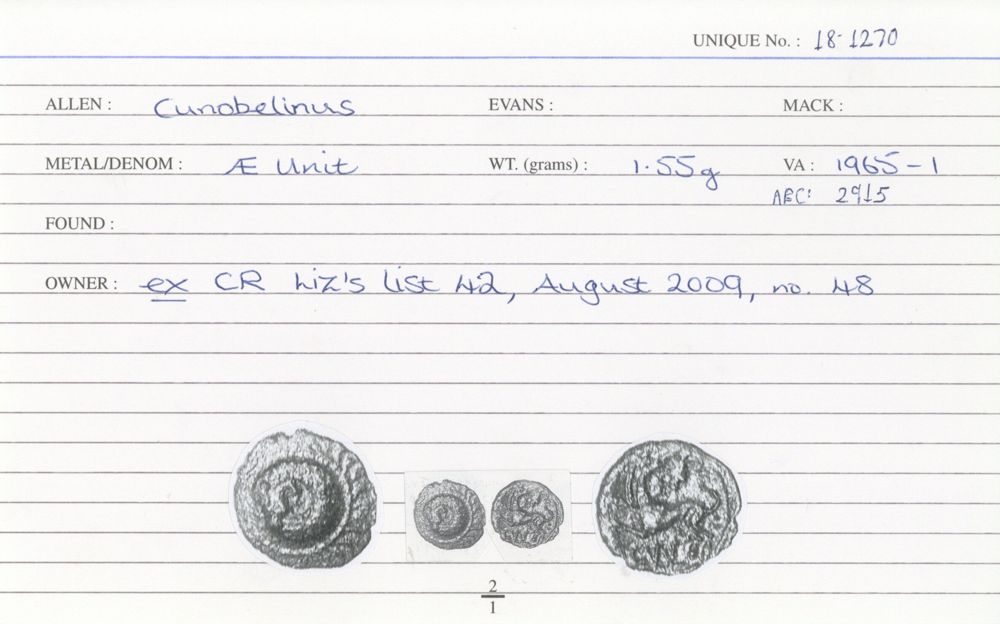 UNIQUE No. : 18-1270
ALLEN : Cunobelinus EVANS : MACK :
METAL/DENOM : Æ Unit WT. (grams) : 1.55g VA : 1965-1
ABC: 2915
FOUND :
OWNER : ex CR Liz's list 42, August 2009, no. 48
2
1